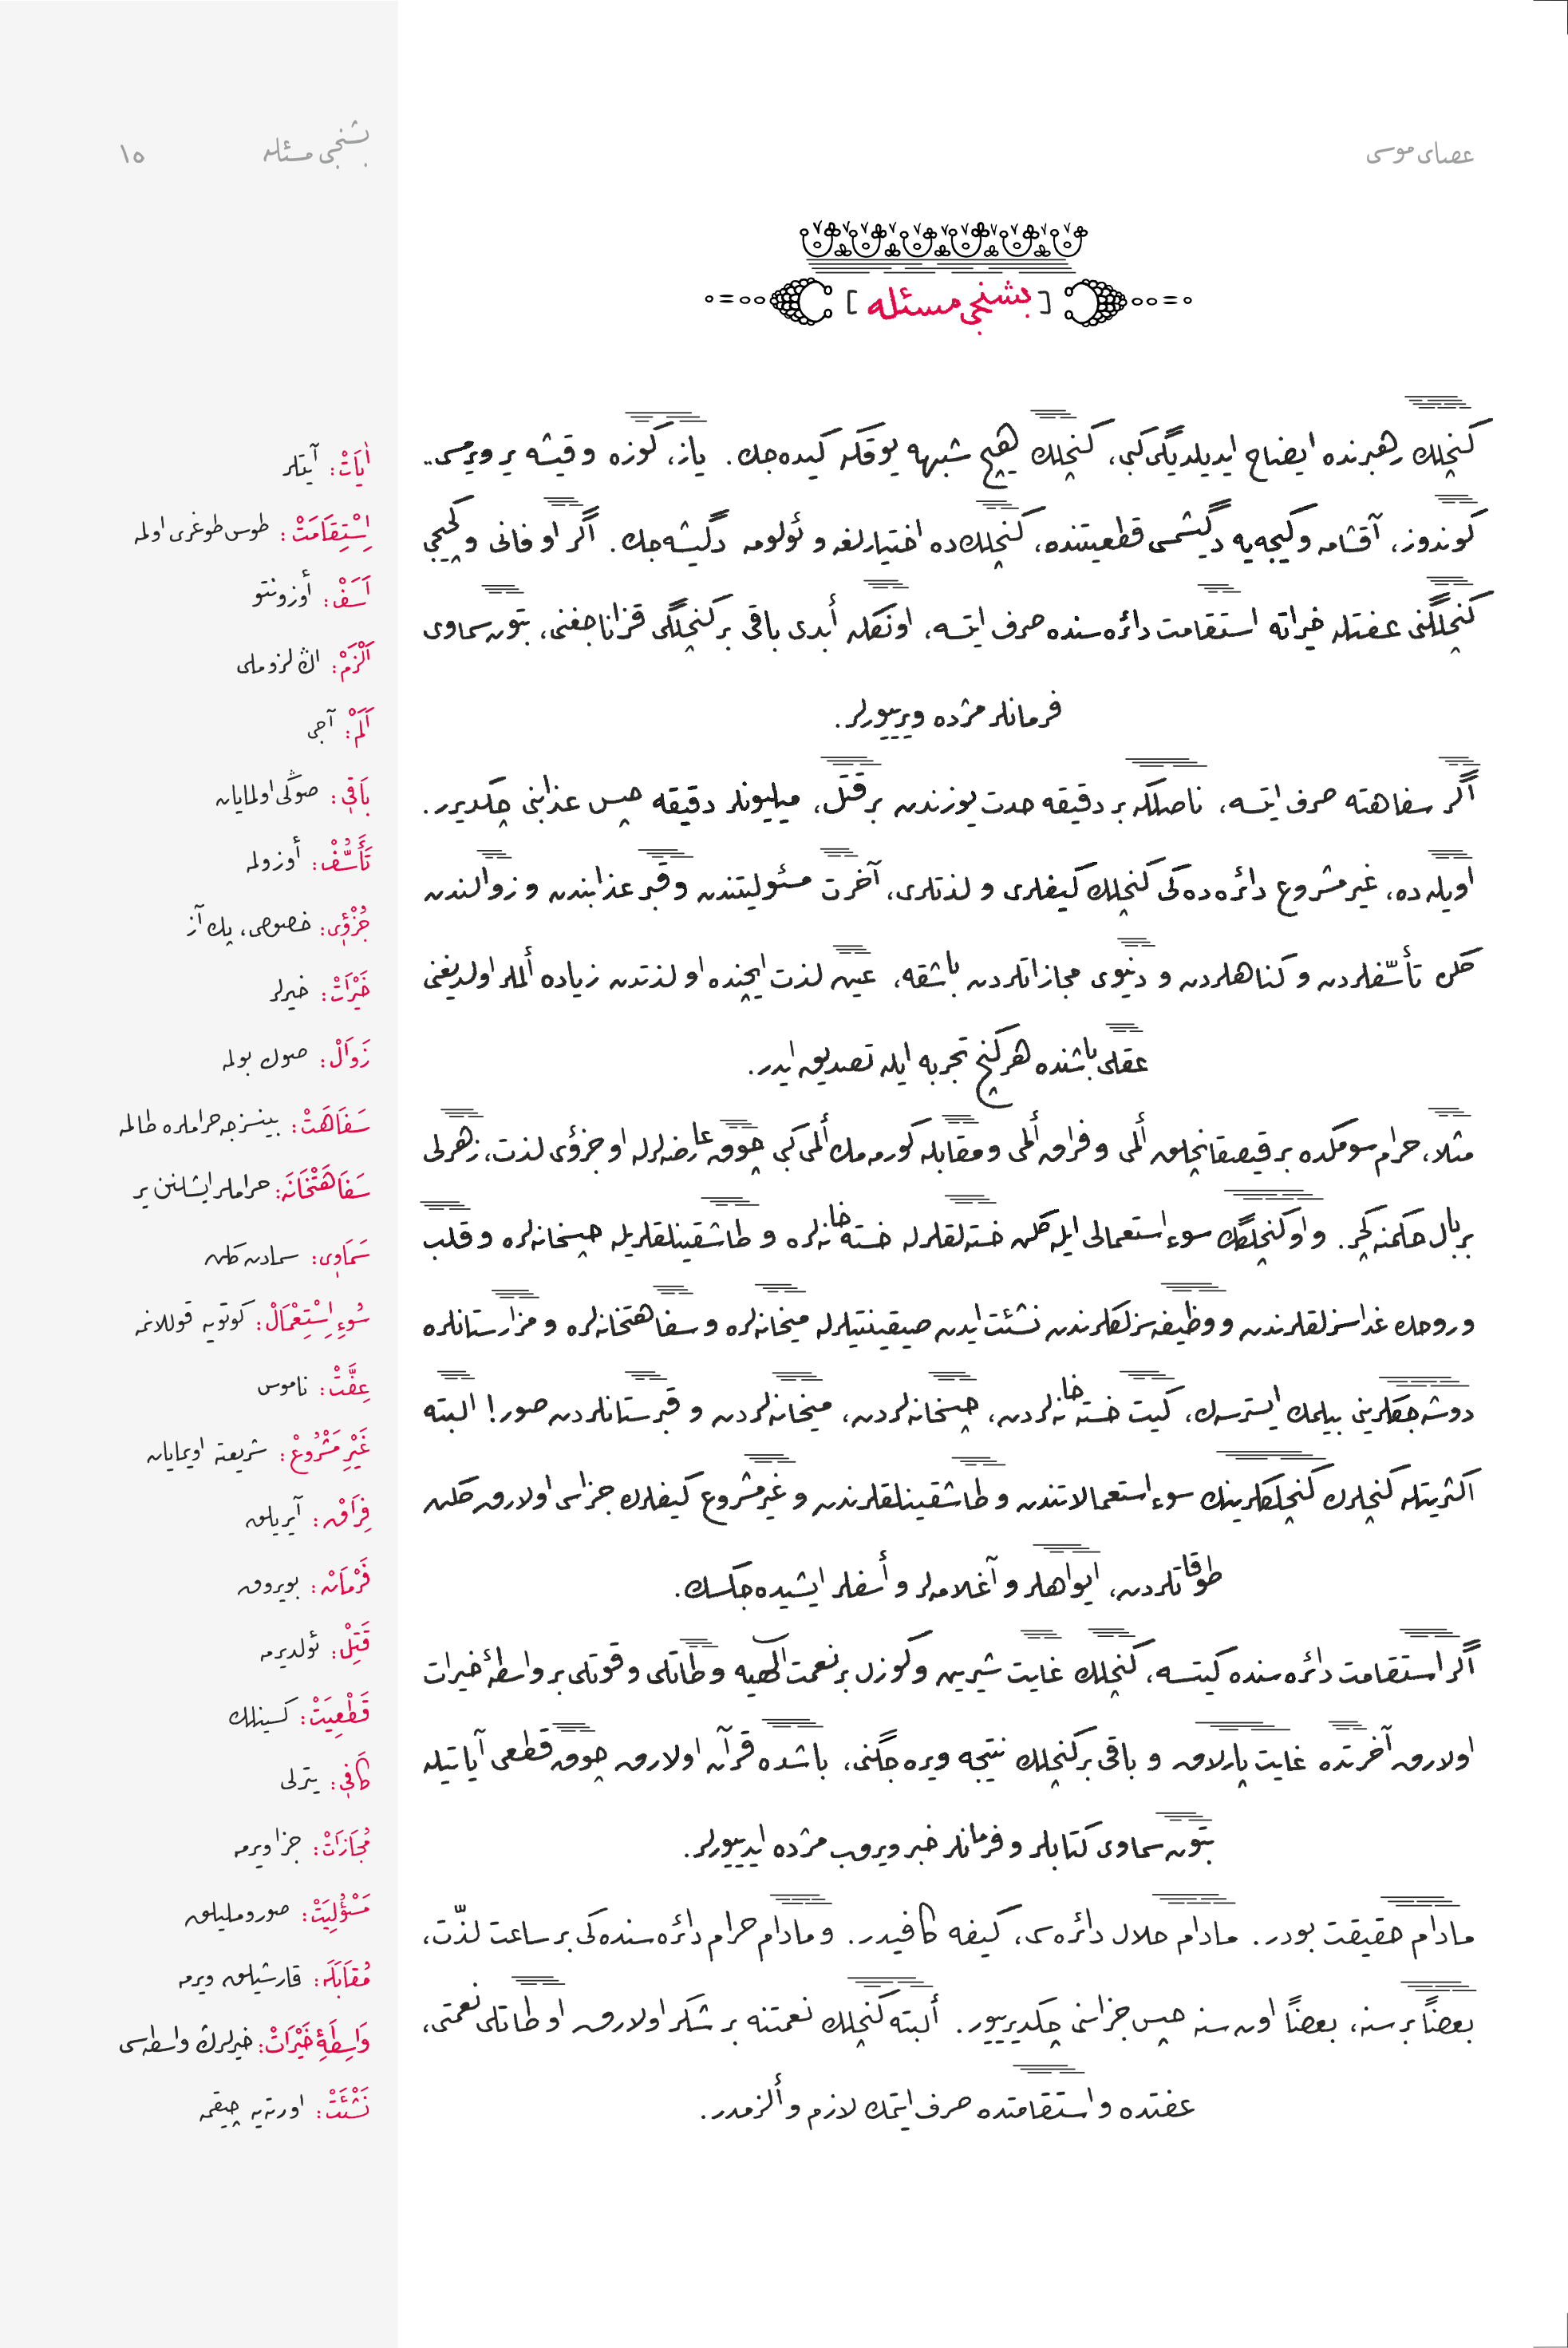 عصای موسی
بشنجی مسئله ١٥
[ بشنجی مسئله ]
كنجلك رهبرنده ايضاح ايديلديگی كبی، كنجلك هيچ شبهه يوقكه كيده‌جك. ياز، كوزه و قيشه ير ويرمسی..
كوندوز، آقشامه و كيجه‌يه دگيشمسی قطعيتنده، كنجلك ده اختيارلغه و ئولومه دگيشه‌جك. اگر او فانی و كچيجی
كنجلگنی عفتله خيراته استقامت دائره‌سنده صرف ايتسه، اونكله أبدی باقی بر كنجلگی قزاناجغنی، بتون سماوی
فرمانلر مژده ويرييورلر.
اگر سفاهته صرف ايتسه، ناصلكه بر دقيقه حدت يوزندن بر قتل، ميليونلر دقيقه حپس عذابنی چكديرر.
اويله ده، غيرمشروع دائره‌ده‌كی كنجلك كيفلری و لذتلری، آخرت مسئوليتندن و قبر عذابندن و زوالندن
كلن تأسّفلردن و كناهلردن و دنيوی مجازاتلردن باشقه، عين لذت ايچنده او لذتدن زياده ألملر اولديغنی
عقلی باشنده هر كنج تجربه ايله تصديق ايدر.
مثلا، حرام سومكده بر قيصقانجلق ألمی و فراق ألمی و مقابله كورمه‌مك ألمی كبی چوق عارضه‌لرله او جزؤی لذت، زهرلی
بر بال حكمنه كچر. و او كنجلگك سوء استعمالی ايله كلن خسته‌لقلرله خسته‌خانه‌لره و طاشقينلقلريله حپسخانه‌لره و قلب
و روحك غداسزلقلرندن و وظيفه‌سزلكلرندن نشئت ايدن صيقينتيلرله ميخانه‌لره و سفاهتخانه‌لره و مزارستانلره
دوشه‌جكلرينی بيلمك ايسترسه‌ك، كيت خسته‌خانه‌لردن، حپسخانه‌لردن، ميخانه‌لردن و قبرستانلردن صور! البته
اكثريتله كنجلرك كنجلكلرينك سوء استعمالاتندن و طاشقينلقلرندن و غيرمشروع كيفلرك جزاسی اولارق كلن
طوقاتلردن، ايواهلر و آغلامه‌لر و أسفلر ايشيده‌جكسك.
اگر استقامت دائره‌سنده كيتسه، كنجلك غايت شيرين و كوزل بر نعمت الٰهيه و طاتلی و قوتلی بر واسطۀ خيرات
اولارق آخرتده غايت پارلاق و باقی بر كنجلك نتيجه ويره‌جگنی، باشده قرآن اولارق چوق قطعی آياتيله
بتون سماوی كتابلر و فرمانلر خبر ويروب مژده ايدييورلر.
مادام حقيقت بودر. مادام حلال دائره‌سی، كيفه كافيدر. و مادام حرام دائره‌سنده‌كی بر ساعت لذّت،
بعضاً بر سنه، بعضاً اون سنه حپس جزاسنی چكديرييور. ألبته كنجلك نعمتنه بر شكر اولارق او طاتلی نعمتی،
عفتده و استقامتده صرف ايتمك لازم و ألزمدر.
اٰيَاتْ: آيتلر
اِسْتِقَامَتْ: طوس طوغری اولمه
اَسَفْ: أوزونتو
اَلْزَمْ: اڭ لزوملی
اَلَمْ: آجی
بَاقِی: صوڭی اولمايان
تَأَسُّفْ: أوزولمه
جُزْؤِی: خصوصی، پك آز
خَيْرَاتْ: خيرلر
زَوَالْ: صوڭ بولمه
سَفَاهَتْ: بينسزجه حراملره طالمه
سَفَاهَتْخَانَه: حراملر ايشلنن ير
سَمَاوِی: سمادن كلن
سُوءِ اِسْتِعْمَالْ: كوتويه قوللانمه
عِفَّتْ: ناموس
غَيْرِ مَشْرُوعْ: شريعته اويمايان
فِرَاقْ: آيريلق
فَرْمَانْ: بويروق
قَتِلْ: ئولديرمه
قَطْعِيَتْ: كسينلك
كَافِی: يترلی
مُجَازَاتْ: جزا ويرمه
مَسْؤُلِيَتْ: صوروملیلق
مُقَابَلَه: قارشيلق ويرمه
وَاسِطَۀِ خَيْرَاتْ: خيرلرڭ واسطه‌سی
نَشْئَتْ: اورته‌يه چيقمه